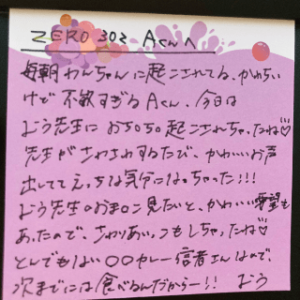 ZERO 302 Aくんへ
毎朝わんちゃんに起こされてる、かわいい
けど不敏すぎるAくん、今日は
よう先生におちんちん起こされちゃったね♡
先生がさわさわするたびで、かわいいお声
出してえっちな気分になっちゃった!!!
よう先生のおま○こ見たいと、かわいい要望も
あったので、さわりあいっこもしちゃったね♡
とんでもない○○カレー信者さんなので、
次までには食べるんだからー!! よう